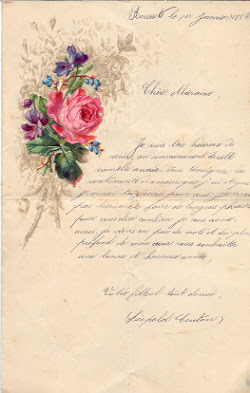 Rousset le 1er Janvier
Chère Marraine
Je suis très heureux de
venir, au commencement de cette
nouvelle année vous témoigner les
sentiments
pas besoin de faire de longues phrases
pour vous dire combien je vous aime,
aussi je viens en peu de mots et du plus
profond de mon cœur vous souhaiter
une bonne et heureuse année,
Votre filleul tout dévoué
Léopold